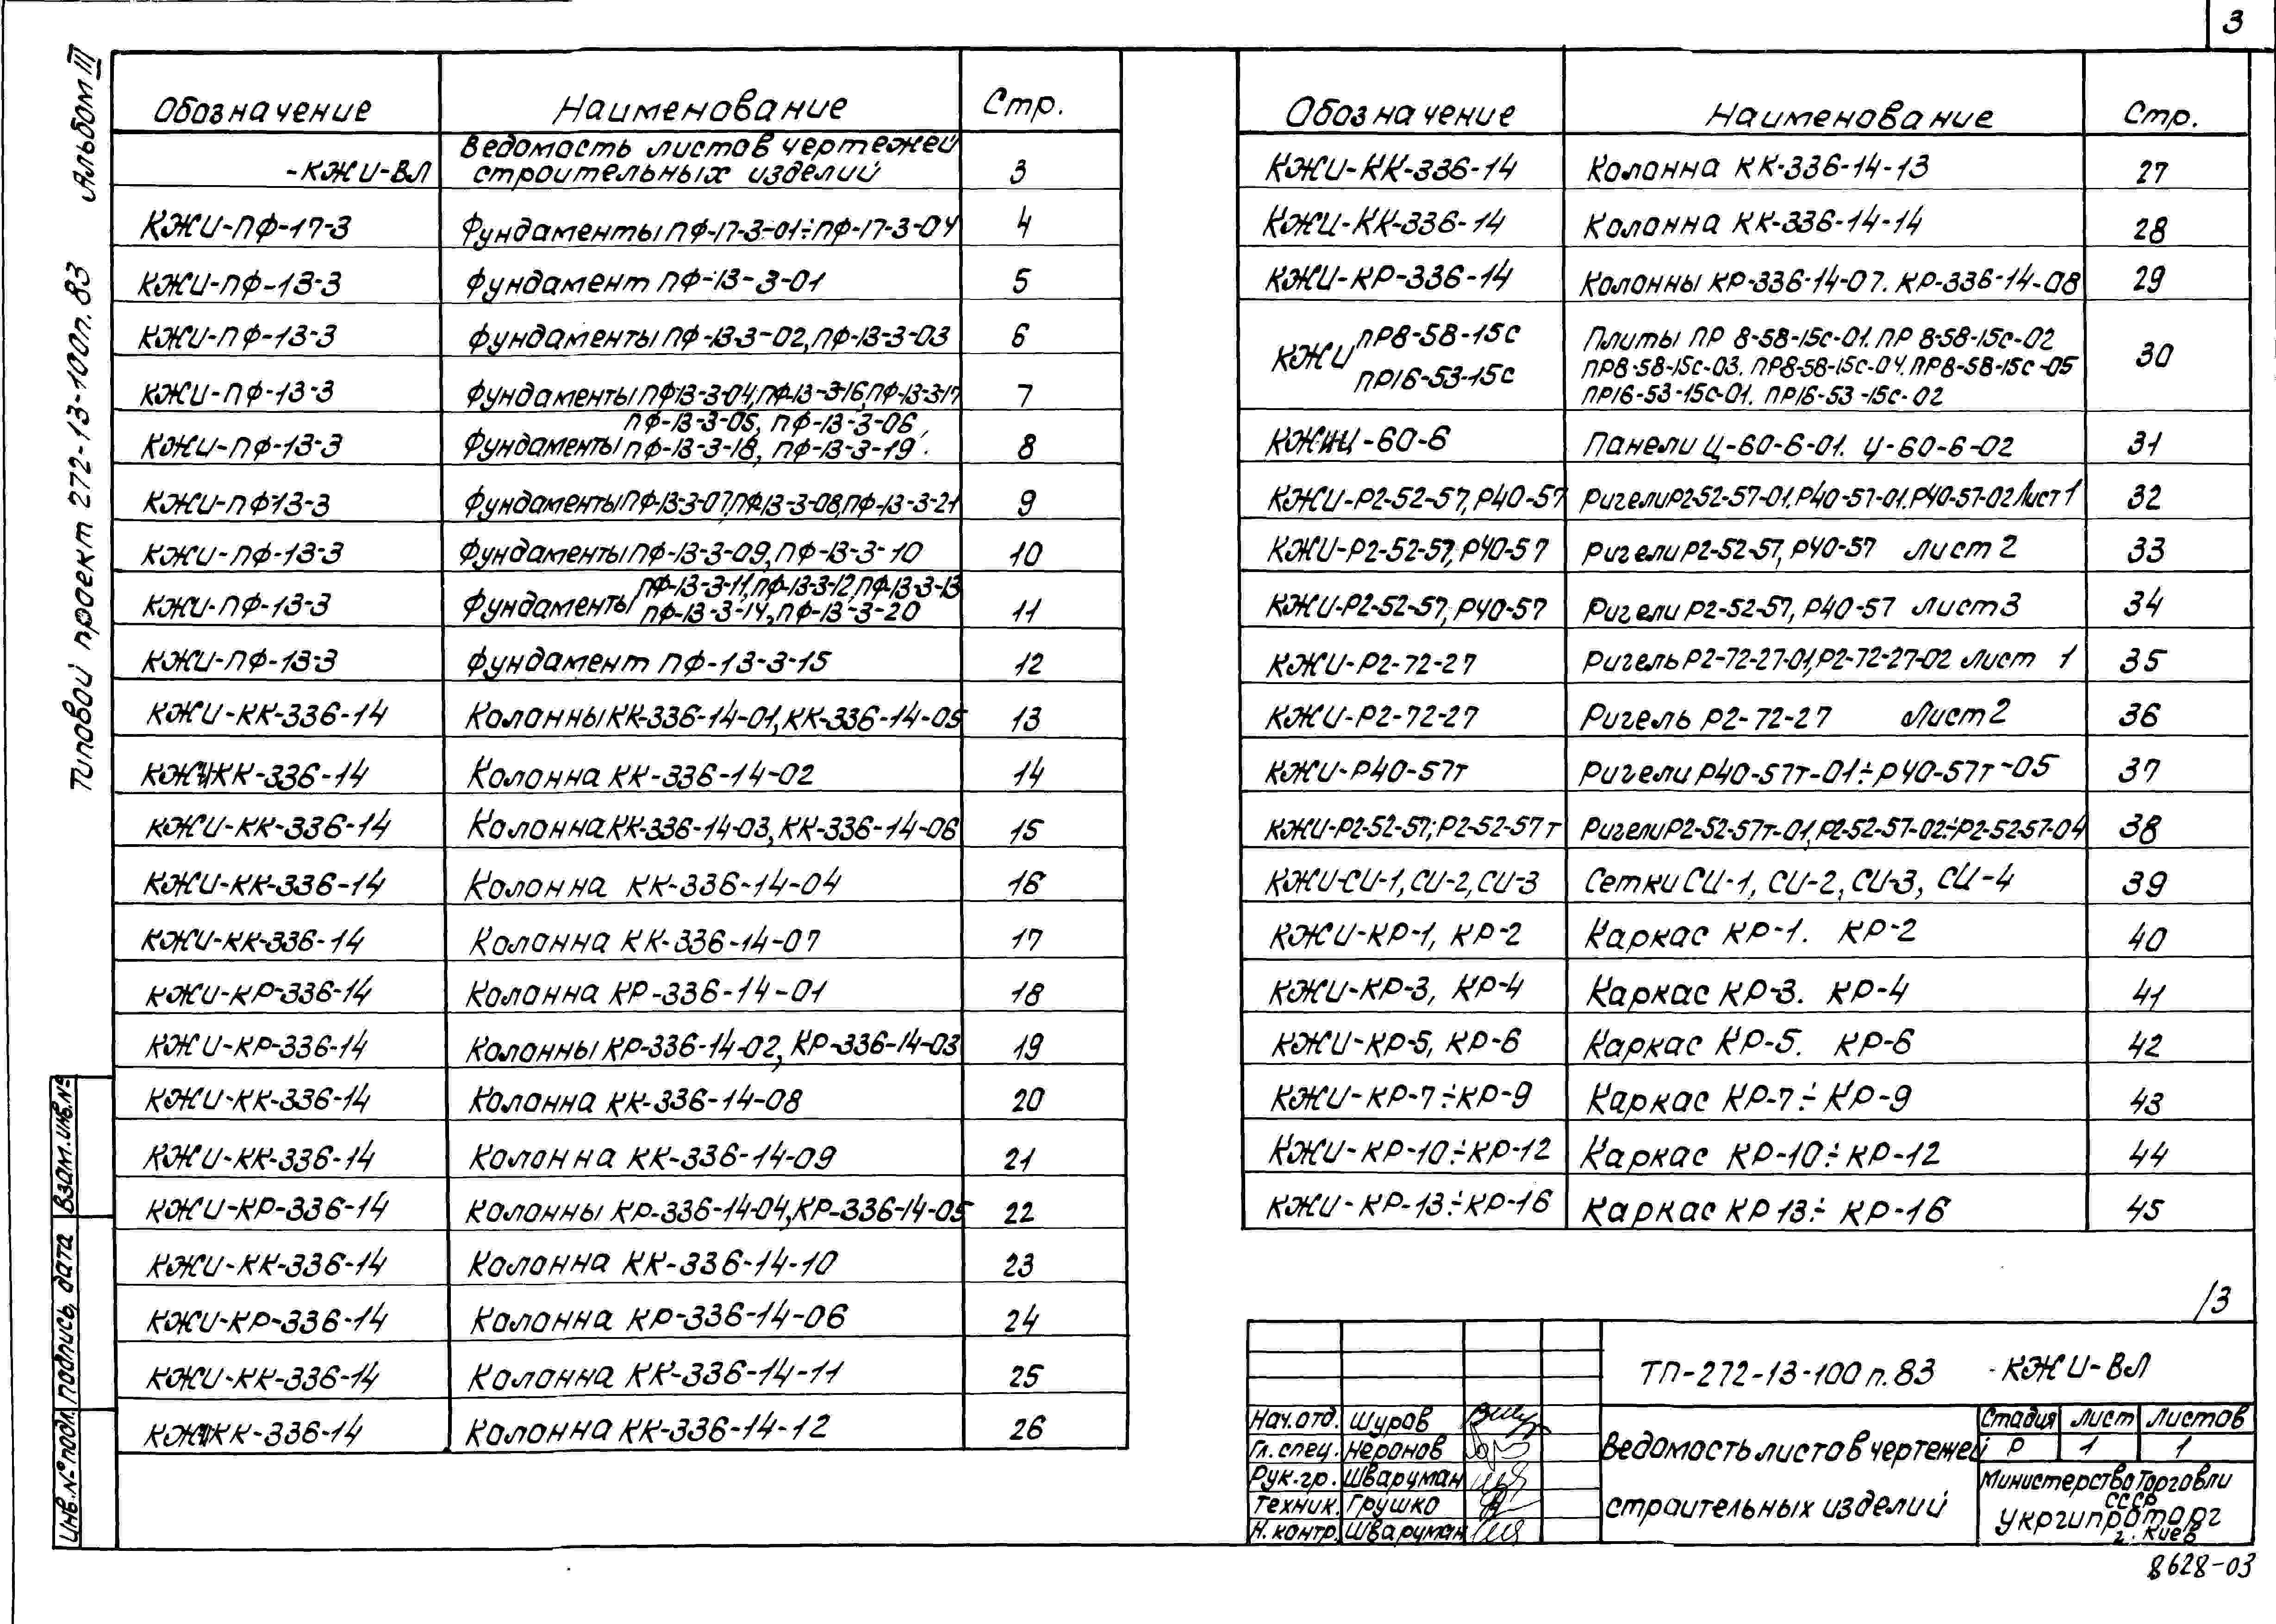 3
Типовой проект 272-13-100п.83 Альбом III
Обозначение Наименование Стр.
-КЖИ-ВЛ Ведомость листов чертежей строительных изделий 3
КЖИ-ПФ-17-3 Фундаменты ПФ-17-3-01÷ПФ-17-3-04 4
КЖИ-ПФ-13-3 Фундамент ПФ-13-3-01 5
КЖИ-ПФ-13-3 Фундаменты ПФ-13-3-02, ПФ-13-3-03 6
КЖИ-ПФ-13-3 Фундаменты ПФ13-3-04, ПФ-13-3-16, ПФ-13-3-17 7
КЖИ-ПФ-13-3 Фундаменты ПФ-13-3-05, ПФ-13-3-06, ПФ-13-3-18, ПФ-13-3-19. 8
КЖИ-ПФ13-3 Фундаменты ПФ-13-3-07, ПФ-13-3-08, ПФ-13-3-21 9
КЖИ-ПФ-13-3 Фундаменты ПФ-13-3-09, ПФ-13-3-10 10
КЖИ-ПФ-13-3 Фундаменты ПФ-13-3-11, ПФ-13-3-12, ПФ-13-3-13 ПФ-13-3-14, ПФ-13-3-20 11
КЖИ-ПФ-13-3 Фундамент ПФ-13-3-15 12
КЖИ-КК-336-14 Колонны КК-336-14-01, КК-336-14-05 13
КЖИ-КК-336-14 Колонна КК-336-14-02 14
КЖИ-КК-336-14 Колонна КК-336-14-03, КК-336-14-06 15
КЖИ-КК-336-14 Колонна КК-336-14-04 16
КЖИ-КК-336-14 Колонна КК-336-14-07 17
КЖИ-КР-336-14 Колонна КР-336-14-01 18
КЖИ-КР-336-14 Колонны КР-336-14-02, КР-336-14-03 19
КЖИ-КК-336-14 Колонна КК-336-14-08 20
КЖИ-КК-336-14 Колонна КК-336-14-09 21
КЖИ-КР-336-14 Колонны КР-336-14-04, КР-336-14-05 22
КЖИ-КК-336-14 Колонна КК-336-14-10 23
КЖИ-КР-336-14 Колонна КР-336-14-06 24
КЖИ-КК-336-14 Колонна КК-336-14-11 25
КЖИ-КК-336-14 Колонна КК-336-14-12 26
Обозначение Наименование Стр.
КЖИ-КК-336-14 Колонна КК-336-14-13 27
КЖИ-КК-336-14 Колонна КК-336-14-14 28
КЖИ-КР-336-14 Колонны КР-336-14-07. КР-336-14-08 29
КЖИ ПР8-58-15с ПР16-53-15с Плиты ПР 8-58-15с-01. ПР 8-58-15с-02
ПР8-58-15с-03. ПР8-58-15с-04. ПР8-58-15с-05 30
ПР16-53-15с-01. ПР16-53-15с-02
КЖИ-Ц-60-6 Панели Ц-60-6-01. Ц-60-6-02 31
КЖИ-Р2-52-57, Р40-57 Ригели Р2-52-57-01. Р40-57-01. Р40-57-02 Лист 1 32
КЖИ-Р2-52-57, Р40-57 Ригели Р2-52-57, Р40-57 Лист 2 33
КЖИ-Р2-52-57, Р40-57 Ригели Р2-52-57, Р40-57 Лист 3 34
КЖИ-Р2-72-27 Ригель Р2-72-27-01, Р2-72-27-02 Лист 1 35
КЖИ-Р2-72-27 Ригель Р2-72-27 Лист 2 36
КЖИ-Р40-57т Ригели Р40-57т-01÷Р40-57т-05 37
КЖИ-Р2-52-57; Р2-52-57т Ригели Р2-52-57т-01, Р2-52-57-02÷Р2-52-57-04 38
КЖИ-СИ-1, СИ-2, СИ-3 Сетки СИ-1, СИ-2, СИ-3, СИ-4 39
КЖИ-КР-1, КР-2 Каркас КР-1. КР-2 40
КЖИ-КР-3, КР-4 Каркас КР-3. КР-4 41
КЖИ-КР-5, КР-6 Каркас КР-5. КР-6 42
КЖИ-КР-7÷КР-9 Каркас КР-7÷КР-9 43
КЖИ-КР-10÷КР-12 Каркас КР-10÷КР-12 44
КЖИ-КР-13÷КР-16 Каркас КР13÷КР-16 45
/3
ТП-272-13-100п.83 -КЖИ-ВЛ
Нач.отд. Шуров
Гл.спец. Неронов
Рук.гр. Шваруман
Техник. Грушко
Н.контр. Шваруман
Ведомость листов чертежей
строительных изделий
Стадия Лист Листов
Р 1 1
Министерство Торговли
СССР
Укргипроторг
г. Киев
8628-03
Взам.инв.№
Подпись, дата
Инв.№подл.